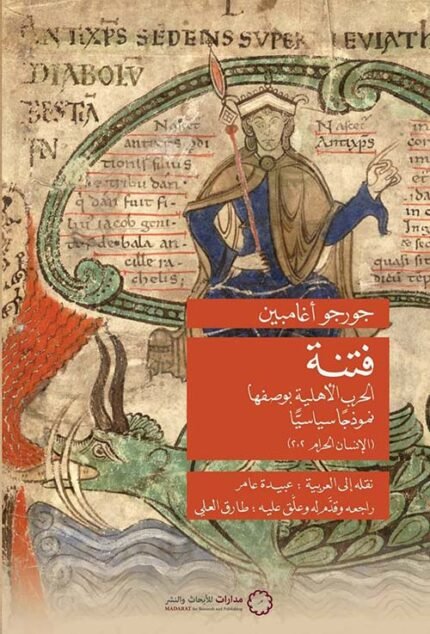 ANTIXPS SEDENS SUPER LEVIATH
DIABOLV
BESTIA
tionis filius
tribu dan·
dan fuit fi-
iacob
de bala an-
cille ra-
chelis;
جورجو أغامبين
فتنة
الحرب الأهلية بوصفها
نموذجًا سياسيًّا
(الإنسان الحرام ٢،٢)
نقله إلى العربية : عبيدة عامر
راجعه وقدَّم له وعلَّق عليه : طارق العلي
مدارات للأبحاث والنشر
MADARAT for Research and Publishing